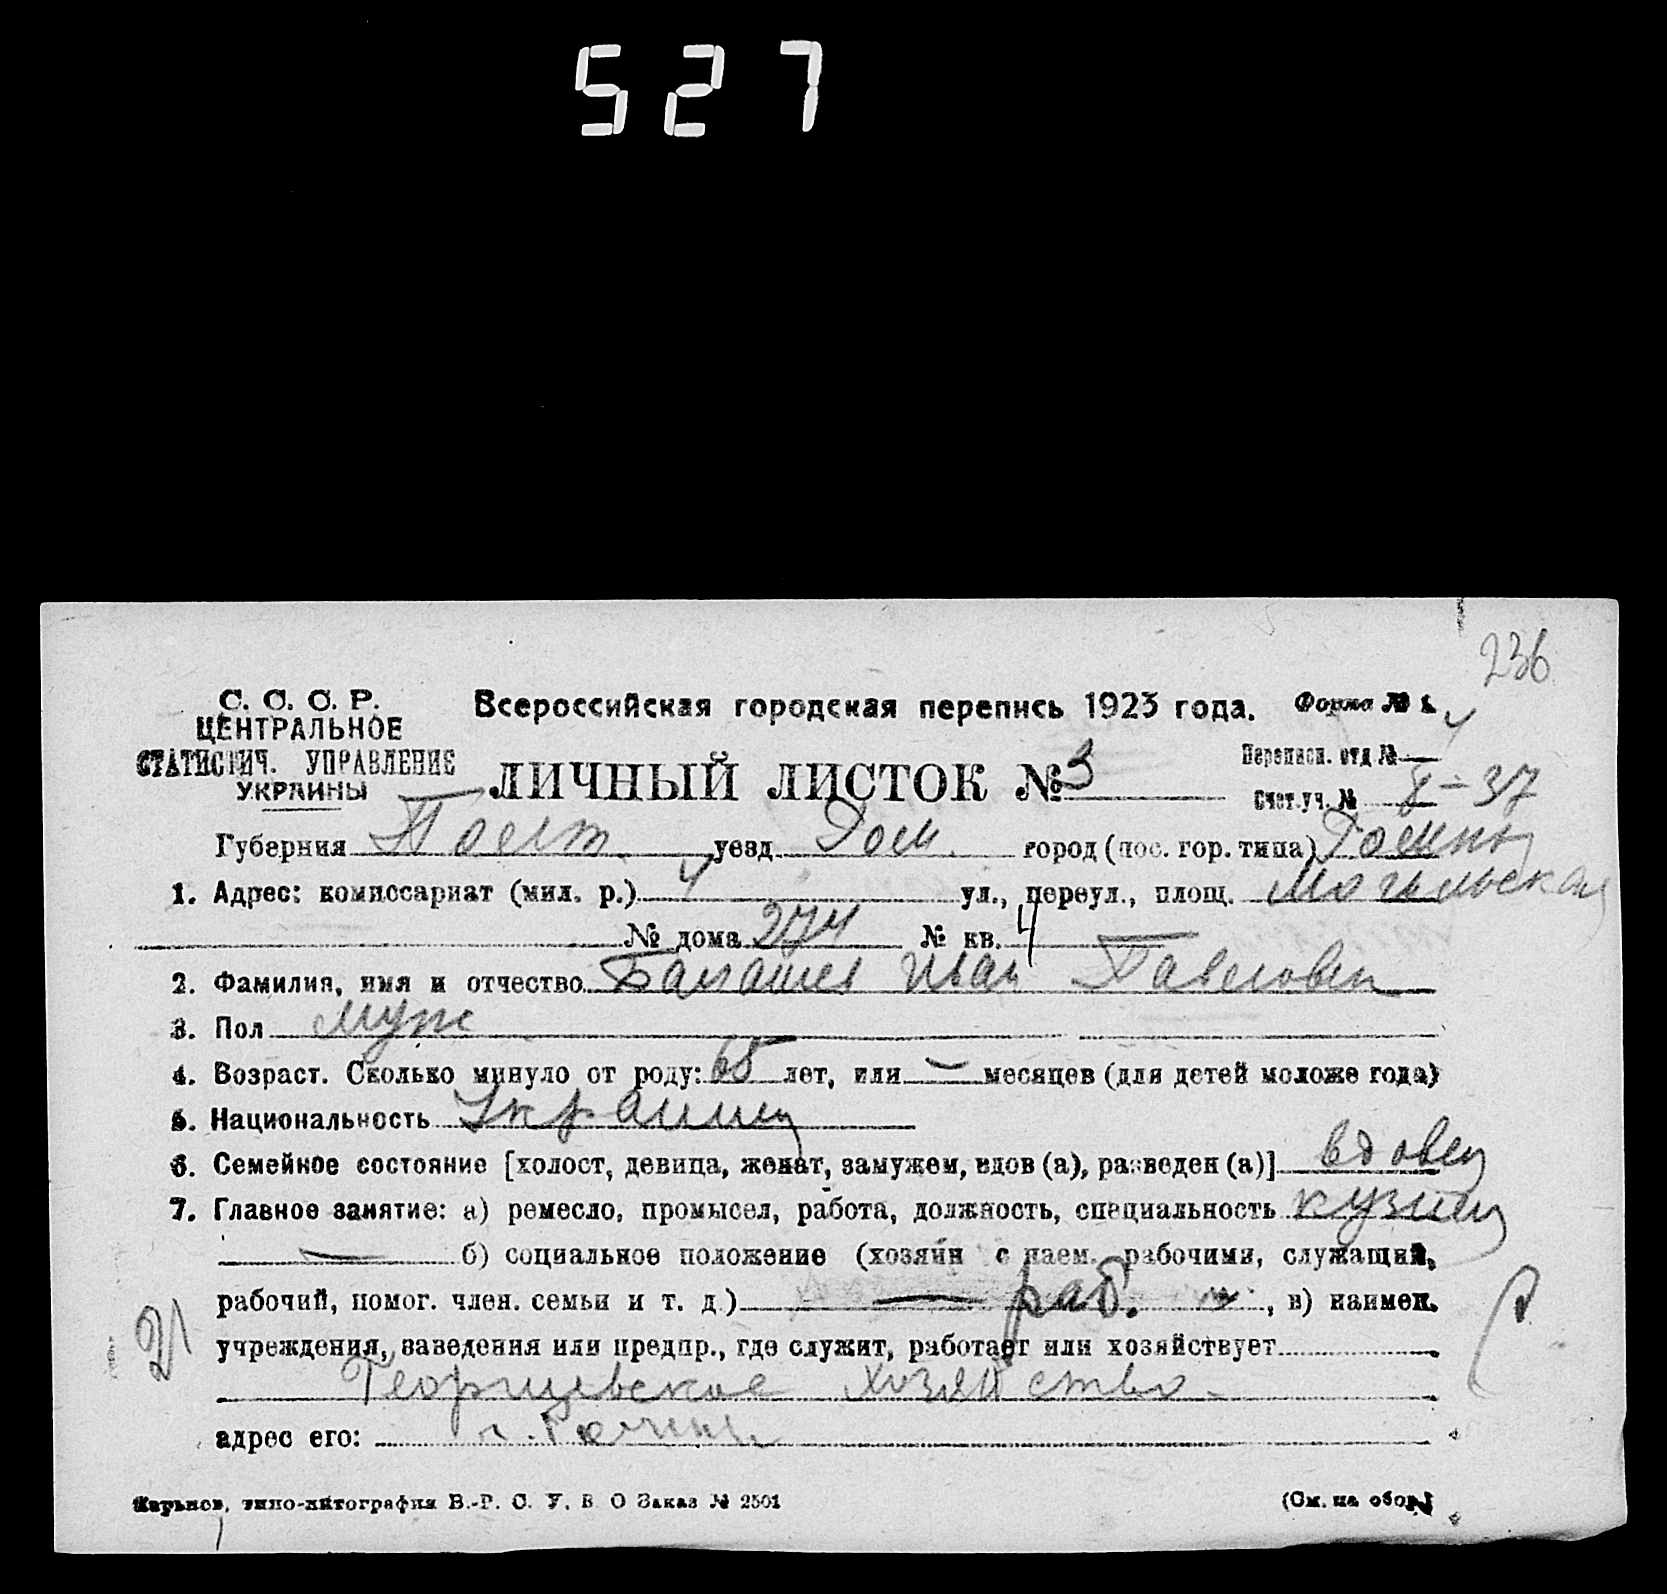 527
236
С. С. С. Р.
ЦЕНТРАЛЬНОЕ
СТАТИСТИЧ. УПРАВЛЕНИЕ
УКРАИНЫ
Всероссийская городская перепись 1923 года.
Форма № 1.
ЛИЧНЫЙ ЛИСТОК № 3
Переписн. отд. № 4
Счет. уч. № 8-37
Губерния Полт. уезд Ром. город (пос. гор. типа) Ромны
1. Адрес: комиссариат (мил. р.) 4 ул., переул., площ.
№ дома 274 № кв. 4
2. Фамилия, имя и отчество Иван Павлович
3. Пол муж
4. Возраст. Сколько минуло от роду: 65 лет, или — месяцев (для детей моложе года)
5. Национальность Украинец
6. Семейное состояние [холост, девица, женат, замужем, вдов (а), разведен (а)] вдовец
7. Главное занятие: а) ремесло, промысел, работа, должность, специальность кузнец
— б) социальное положение (хозяин с наем. рабочими, служащий,
рабочий, помог. член. семьи и т. д.) — раб. , в) наимен.
21
учреждения, заведения или предпр., где служит, работает или хозяйствует
хозяйство
адрес его: г. Ромны
Харьков, типо-литография В.-Р. С. У. В. О Заказ № 2501
(См. на обор.)